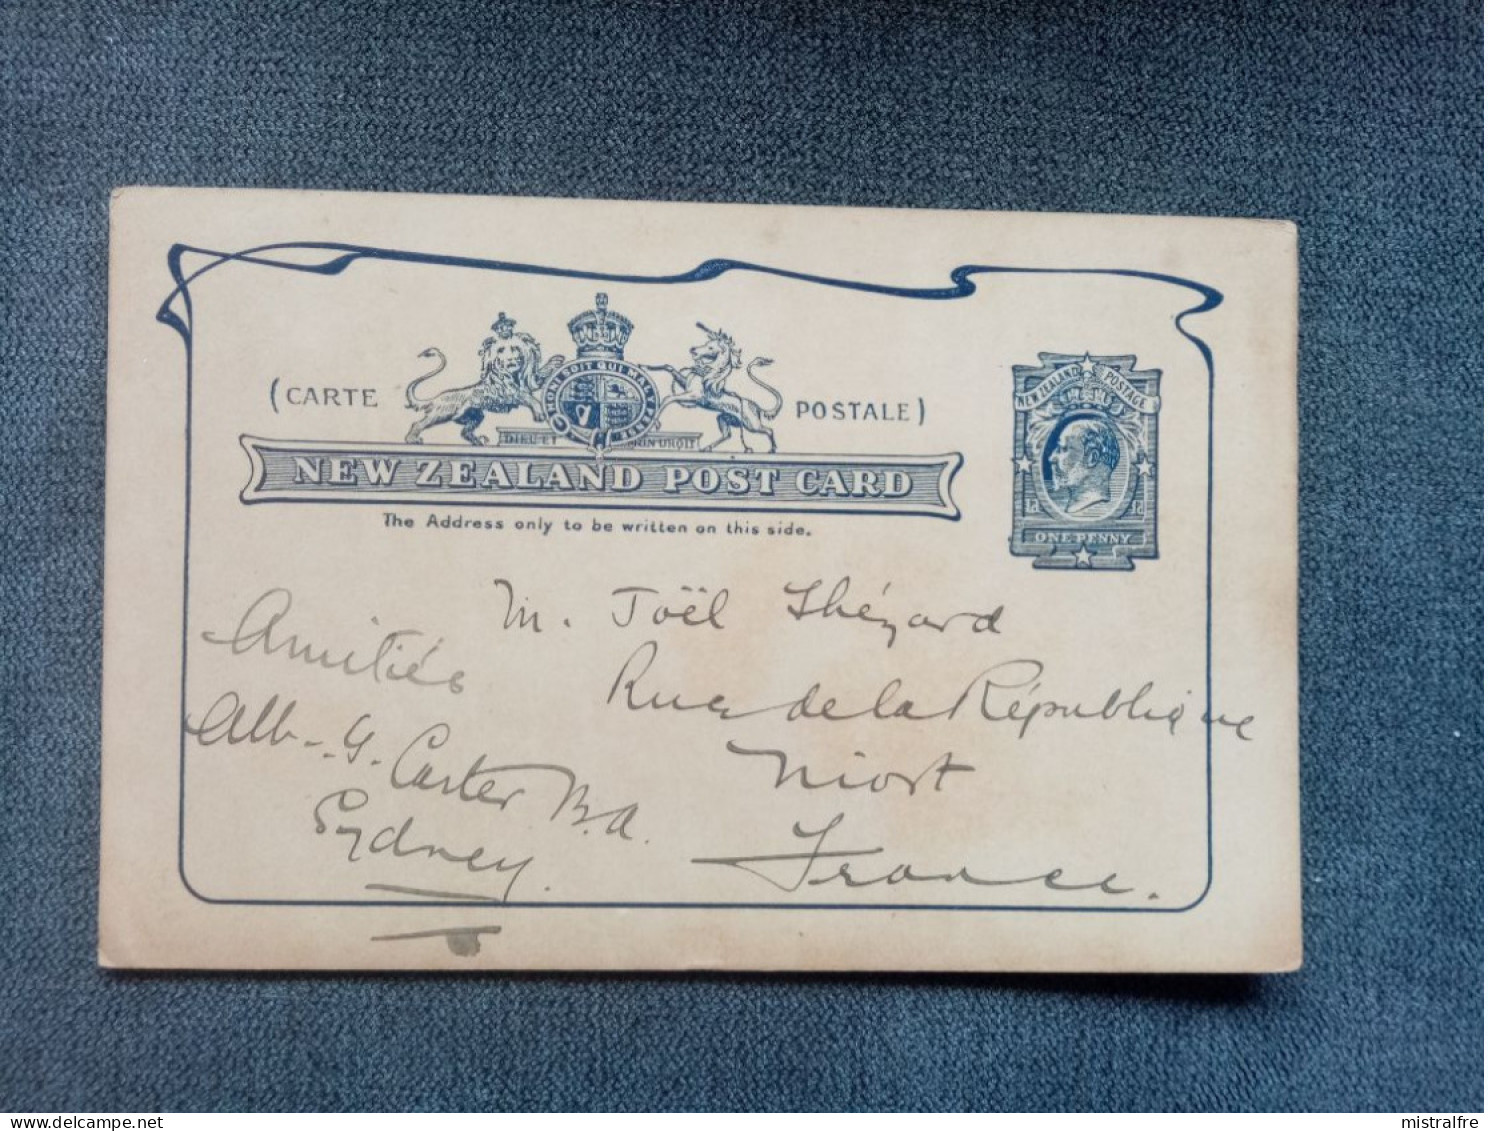 (CARTE POSTALE)
HONI SOIT QUI MAL Y PENSE
DIEU ET MON DROIT
NEW ZEALAND POST CARD
The Address only to be written on this side.
NEW ZEALAND POSTAGE
1d 1d
ONE PENNY
M. Joël Thézard
Rue de la République
Niort
France.
Amitiés
Alb. G. Carter B.A.
Sydney.
mistralfre